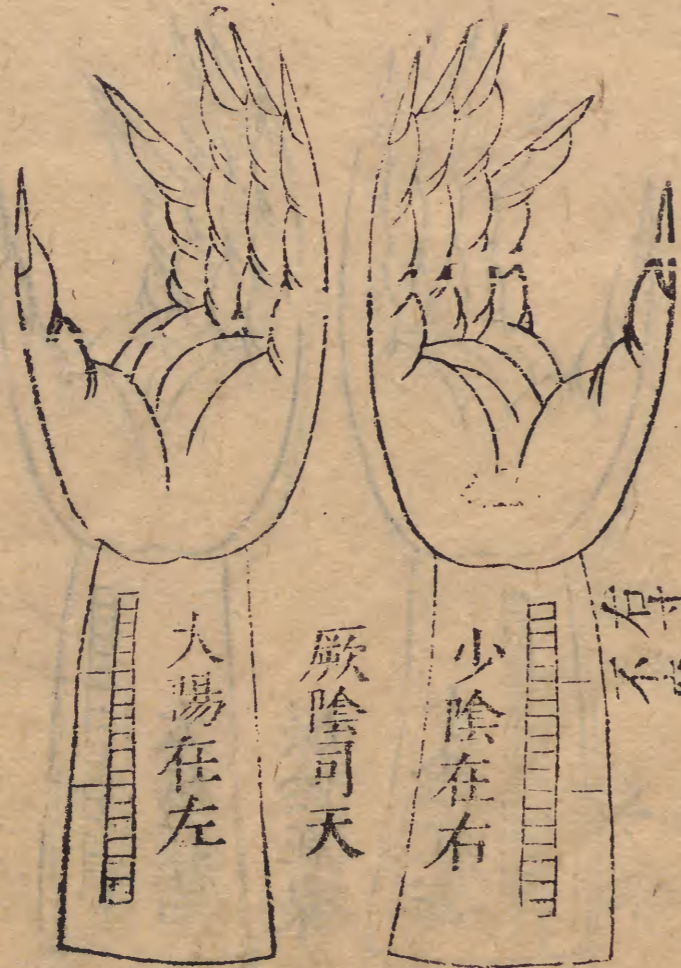 不
少陰在右
厥陰司天
大陽在左